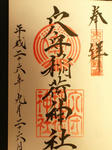 奉拝
穴守稲荷神社
平成二六年九月二六日